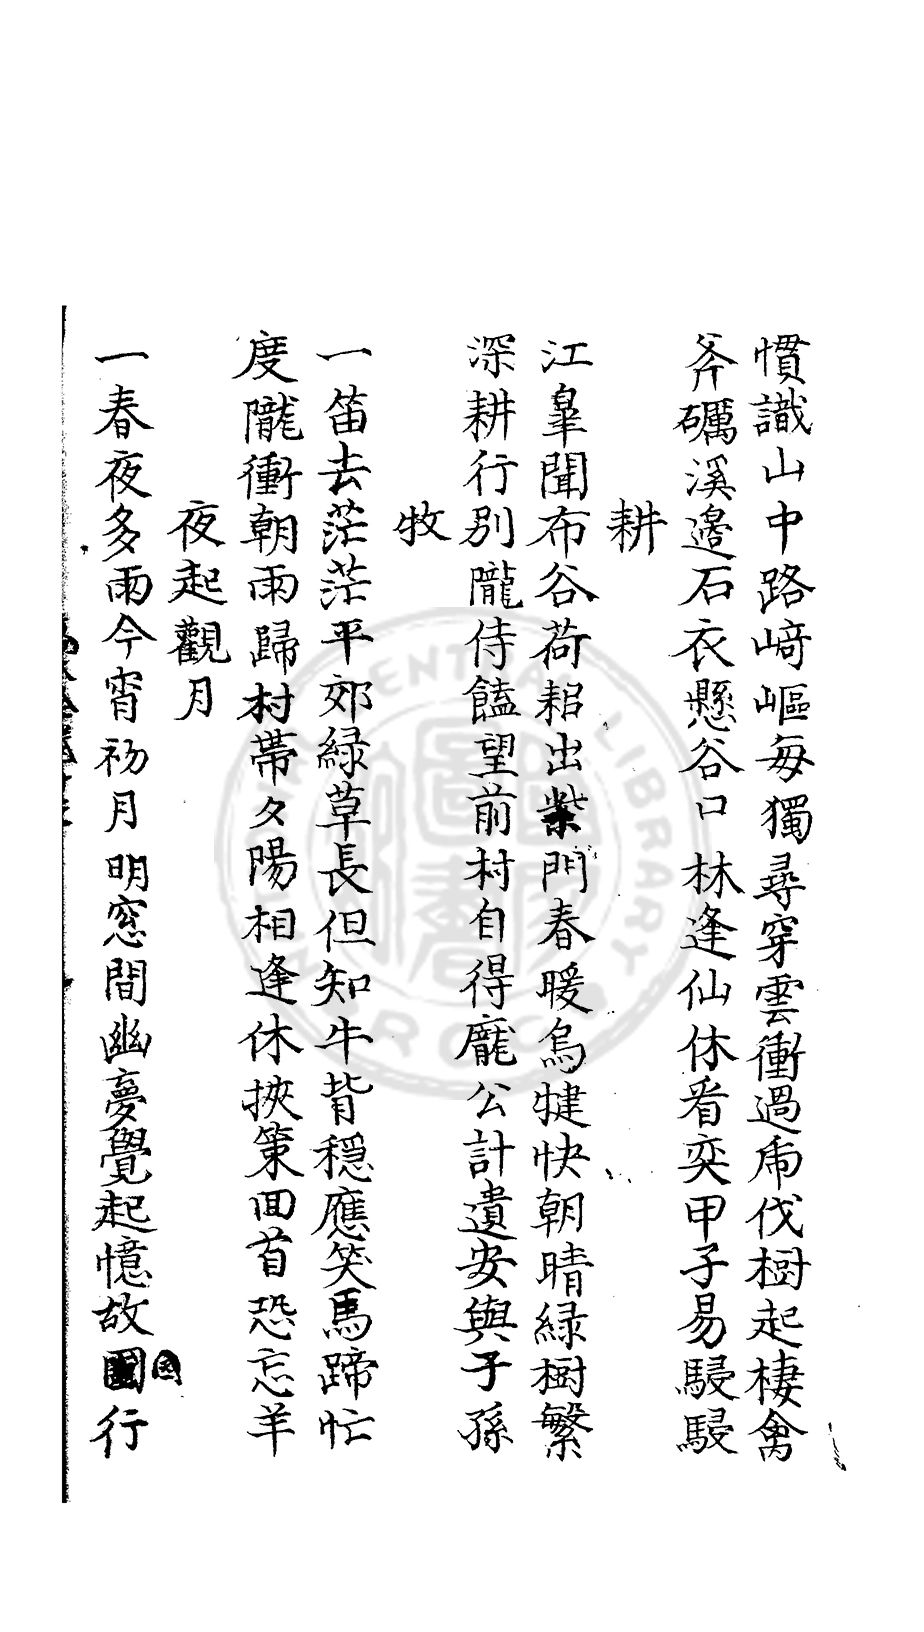 慣識山中路﨑嶇每獨尋穿雲衝過虎伐樹起棲禽
斧礪溪邊石衣懸谷口林逢仙休看奕甲子易駸駸
耕
江皐聞布谷荷耜出柴門春暖烏犍快朝晴緑樹繁
深耕行別隴侍饁望前村自得龐公計遺安與子孫
牧
一笛去茫茫平郊緑草長但知牛背穩應笑馬蹄忙
度隴衝朝雨歸村帶夕陽相逢休挾策回首恐忘羊
夜起觀月
一春夜多雨今宵初月明窓間幽夢覺起憶故國行
NATIONAL CENTRAL LIBRARY R.O.C.